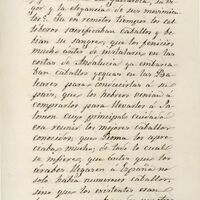 gor y la elegancia de sus movimien-
tos. En remotos tiempos los cel-
tíberos sacrificaban caballos y be-
bían su sangre, que los fenicios
mucho antes de instalarse en las
costas de Andalucía ya embarca-
ban caballos yeguas en las Ba-
leares para conducirlas a su
país, que los hebreos venían a
comprarlos para llevarlos a Sa-
lomon cuyo principal cuidado
era reunir los mejores caballos
conocidos, que Roma los apre-
ciaba mucho; de todo lo cual
se infiere, que antes que los
árabes llegaran a España no
solo había numerosos caballos,
sino que los existentes eran